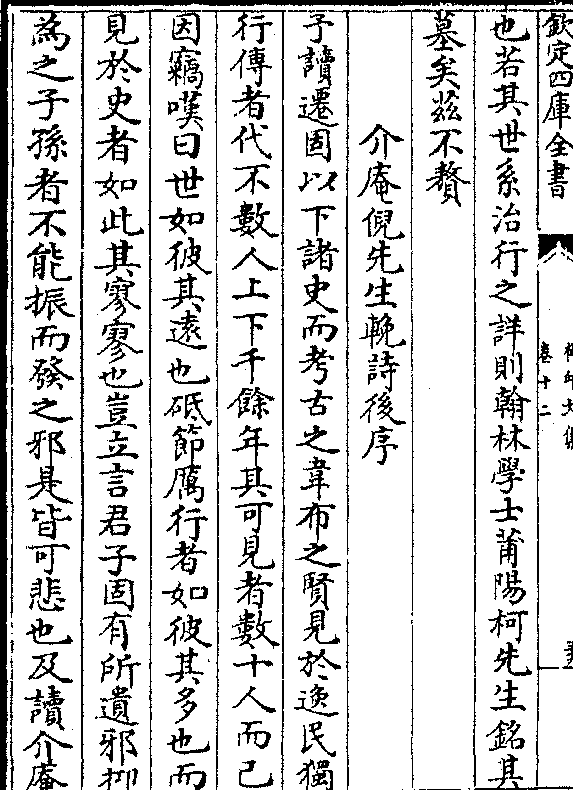 欽定四庫全書
卷十二
也若其世系治行之詳則翰林學士莆陽柯先生銘其
墓矣兹不贅
介庵倪先生輓詩後序
予讀遷固以下諸史而考古之韋布之賢見於逸民獨
行傳者代不數人上下千餘年其可見者數十人而已
因竊嘆曰世如彼其遠也砥節厲行者如彼其多也而
見於史者如此其寥寥也豈立言君子固有所遺邪抑
為之子孫者不能振而發之邪是皆可悲也及讀介庵